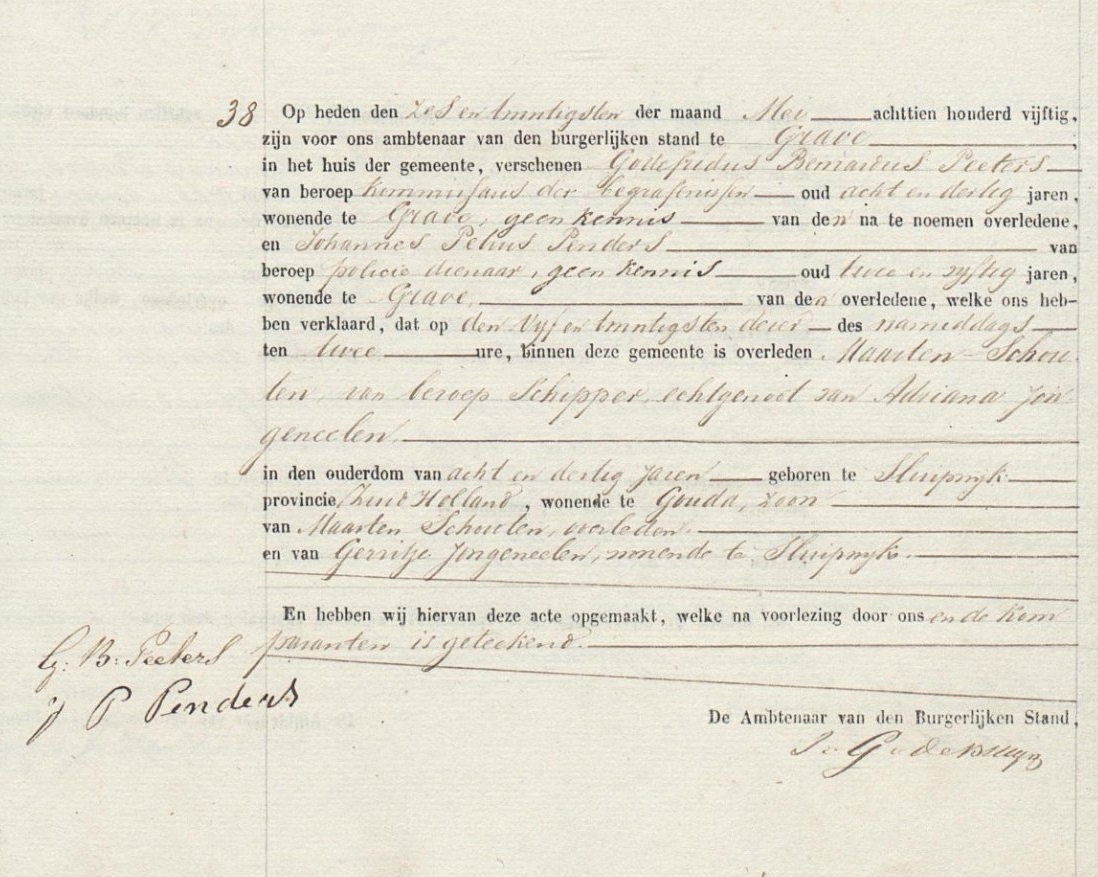 38 Op heden den zes en twintigsten der maand Mei achttien honderd vijftig,
zijn voor ons ambtenaar van den burgerlijken stand te Grave ;
in het huis der gemeente, verschenen Godefridus Bernardus Peeters
van beroep kommissaris der begrafenissen oud acht en dertig jaren,
wonende te Grave, geen kennis van den na te noemen overledene,
en Johannes Petrus Penders van
beroep policie dienaar, geen kennis oud twee en vyftig jaren,
wonende te Grave, van den overledene, welke ons heb-
ben verklaard, dat op den Vyf en twintigsten dezer des namiddags
ten twee ure, binnen deze gemeente is overleden Maarten Schou-
ten, van beroep Schipper, echtgenoot van Adriana Jon-
geneelen.
in den ouderdom van acht en dertig jaren geboren te Sluipwyk
provincie Zuid Holland, wonende te Gouda, zoon
van Maarten Schouten, overleden.
en van Gerritje Jongeneelen, wonende te Sluipwyk.
En hebben wij hiervan deze acte opgemaakt, welke na voorlezing door ons en de kom
paranten is geteekend.
G: B: Peeters
J P Penders
De Ambtenaar van den Burgerlijken Stand,